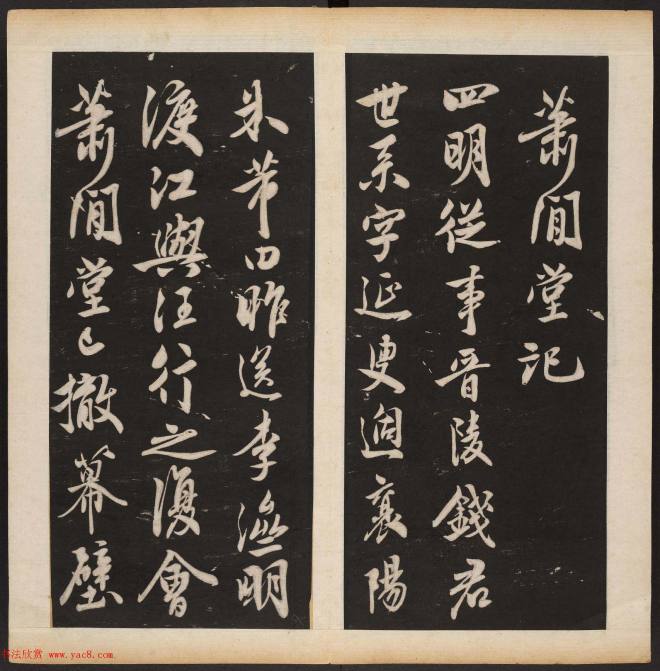 蕭閒堂記
四明從事晉陵錢君
世系字延叟過襄陽
米芾曰昨送李
明
渡江與汪行之復會
蕭閒堂已撤幕壁
书法欣赏 www.yac8.com